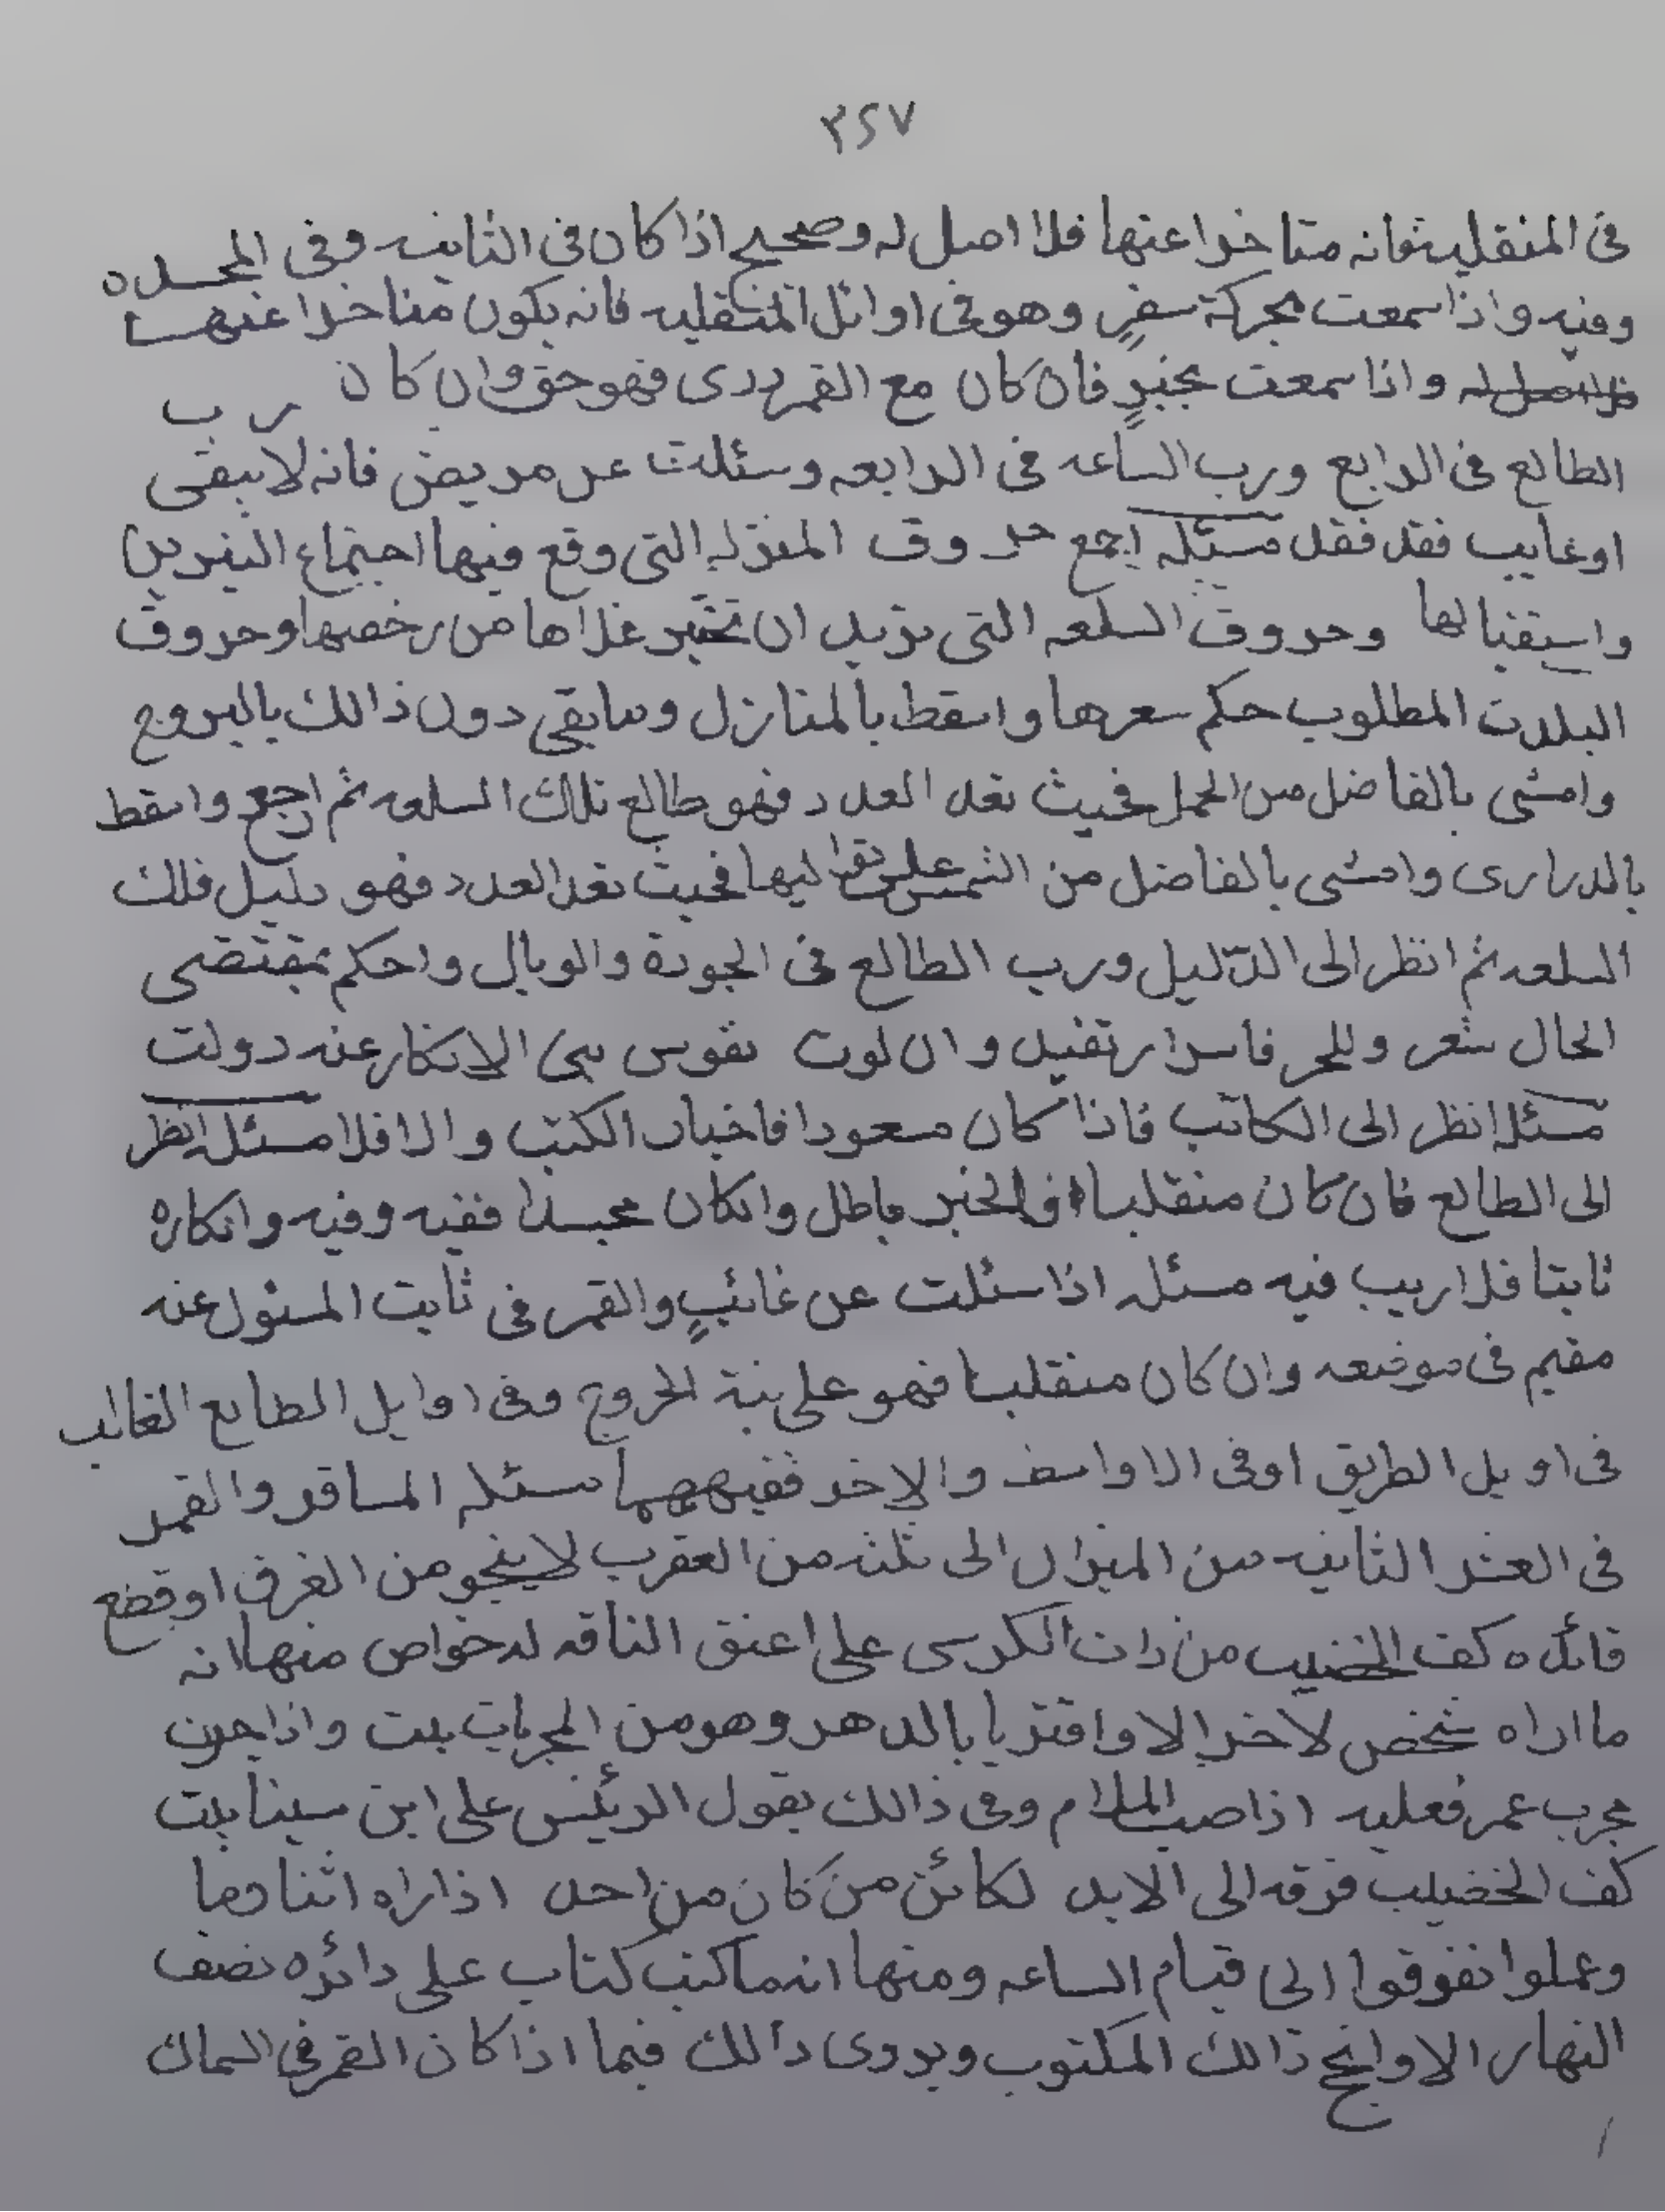 ٣٢٧
فى المنقلبه فانه متاخرا عنها فلا اصل له وصحيح اذا كان فى الثانيه وفى المجسده
وفيه واذا سمعت بحركة سفرٍ وهو فى اوائل المنقلبه فانه يكون متاخرا عنها
فلا اصل له واذا سمعت بخبرٍ فان كان مع القمر ردى فهو حق وان كان رب
الطالع فى الرابع ورب الساعه فى الرابعه وسئلت عن مريض فانه لا يبقى
او غايب فقد فقد مسئله اجمع حروف المنزله التى وقع فيها اجتماع النيرين
واستقبالها وحروف السلعه التى تريد ان تختبر غلاها من رخصها وحروف
البلدت المطلوب حكم سعرها واسقط بالمنازل ومابقى دون ذالك بالبروج
وامشى بالفاضل من الحمل فحيث نفد العدد فهو طالع تلك السلعه ثم ارجع واسقط
بالدرارى وامشى بالفاضل من الشمس على تواليها فحيث نفد العدد فهو دليل فلك
السلعه ثم انظر الى الدّليل ورب الطالع فى الجودة والوبال واحكم بمقتضى
الحال شعر وللحر فاسرار تفيد وان لوت نفوس الانكار عنه دولت
مسئله انظر الى الكاتب فاذا كان مسعودا فاخبار الكتب والا فلا مسئله انظر
الى الطالع فان كان منقلبا فالخبر باطل وانكان مجسدا ففيه وفيه وانكاره
ثابتا فلا ريب فيه مسئله اذا سئلت عن غائبٍ والقمر فى ثابت المسئول عنه
مقيم فى موضعه وان كان منقلبا فهو على نية الخروج وفى اوايل الطالع الغائب
فى اويل الطريق اوفى الاواسط والاخر ففيهما مسئله المسافر والقمر
فى العشر الثانيه من الميزان الى ثلثه من العقرب لا ينجو من الغرق او قطع
فائده كف الخضيب من ذات الكرسى على اعنق الناقه له خواص منها انه
ما اراه شخص لاخر الا وافترقا بالدهر وهو من المجربات بيت واذا جرت
مجرب عمر فعليه اذا صب الملام وفى ذالك يقول الرئيس على ابن سينا بيت
كف الخضيب فرقه الى الابد لكائن من كان من احد اذا راه اثنا دما
وعملوا تفوقوا الى قيام الساعه ومنها انه ما كتب كتاب على دائره نصف
النهار الا وانجح ذالك المكتوب ويروى ذالك فيما اذا كان القمر فى السماك